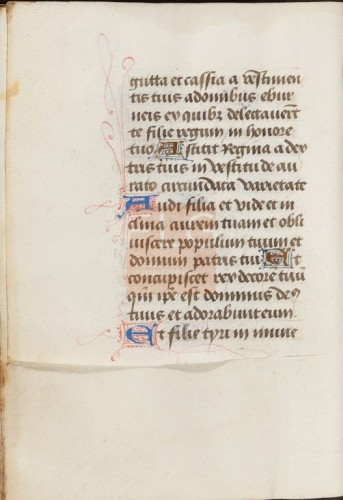 gutta et cassia a vestimen
tis tuis a domibus ebur
neis ex quibz delectauert
te filie regum in honore
tuo Astitit Regina a dex
tris tuis in vestitu de au
rato circundata varietate
Audi filia et vide et in
clina aurem tuam et obli
uiscere populum tuum et
domum patris tui Et
concupiscet rex decore tuu
qm ipe est dominus deus
tuus et adorabunt eum
Et filie tyri in mune